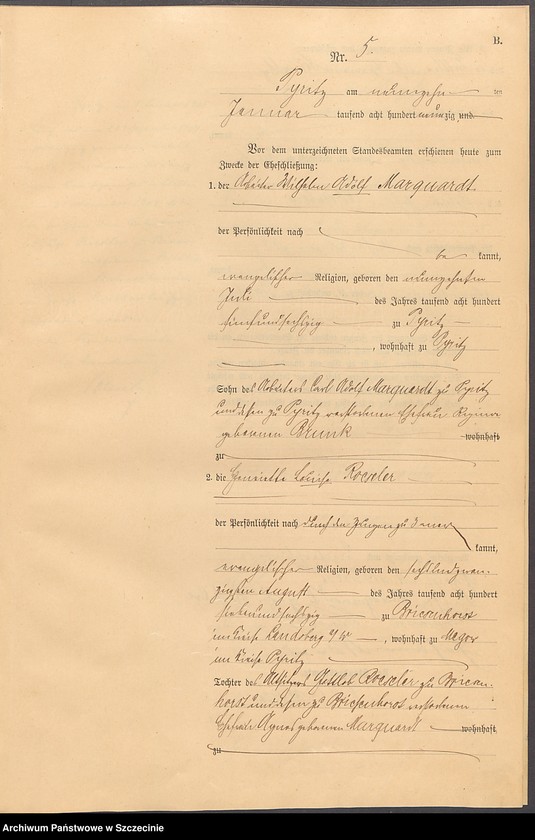 B.
Nr. 5.
Pyritz am neunzehn ten
Januar tausend acht hundert neunzig und
Vor dem unterzeichneten Standesbeamten erschienen heute zum
Zwecke der Eheschließung:
1. der Arbeiter Wilhelm Adolf Marquardt
der Persönlichkeit nach
be kannt,
evangelischer Religion, geboren den neunzehnten
Juli des Jahres tausend acht hundert
fünfundsechzig zu Pyritz
, wohnhaft zu Pyritz
Sohn des Arbeiters Carl Adolf Marquardt zu Pyritz
und dessen zu Pyritz verstorbenen Ehefrau Regine
geborenen Brunk wohnhaft
zu
2. die Henriette Louise Roeseler
der Persönlichkeit nach durch den Zeugen zu
kannt,
evangelischer Religion, geboren den sechsundzwan-
zigsten August des Jahres tausend acht hundert
siebenundsechzig zu
im Kreise Landsberg a/W , wohnhaft zu
im Kreise Pyritz
Tochter des Gottlob Roeseler zu
horst und dessen zu verstorbenen
Ehefrau geborenen Marquardt wohnhaft
zu
Archiwum Państwowe w Szczecinie